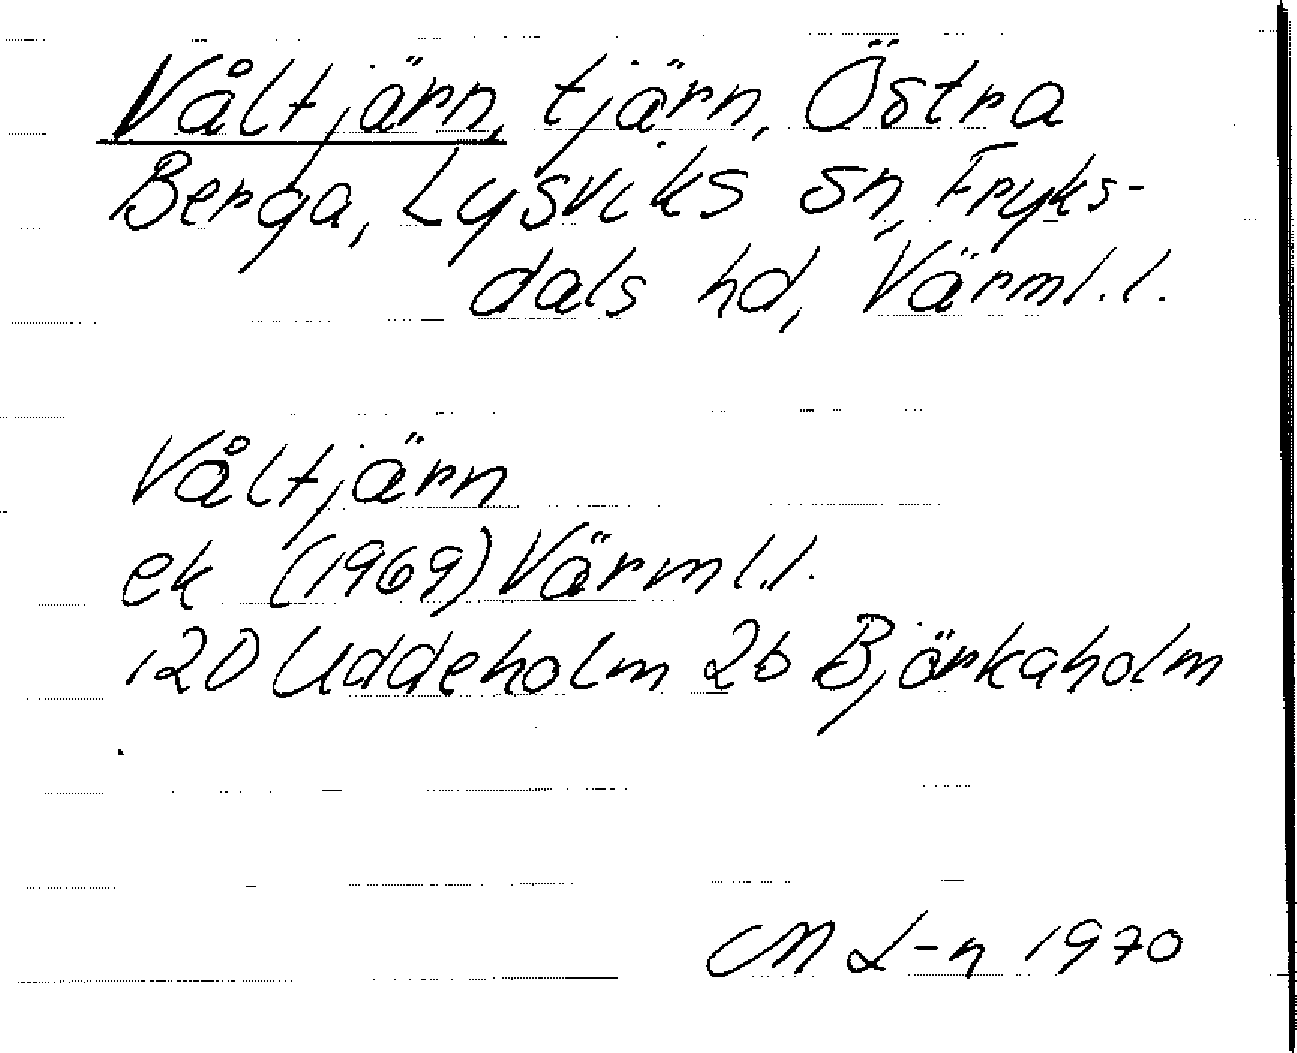 Våltjärn, tjärn, Östra
Berga, Lysviks sn, Fryks-
dals hd, Värml.l.
Våltjärn
ek (1969) Värml.l.
120 Uddeholm 2b Björkaholm
M L-n 1970